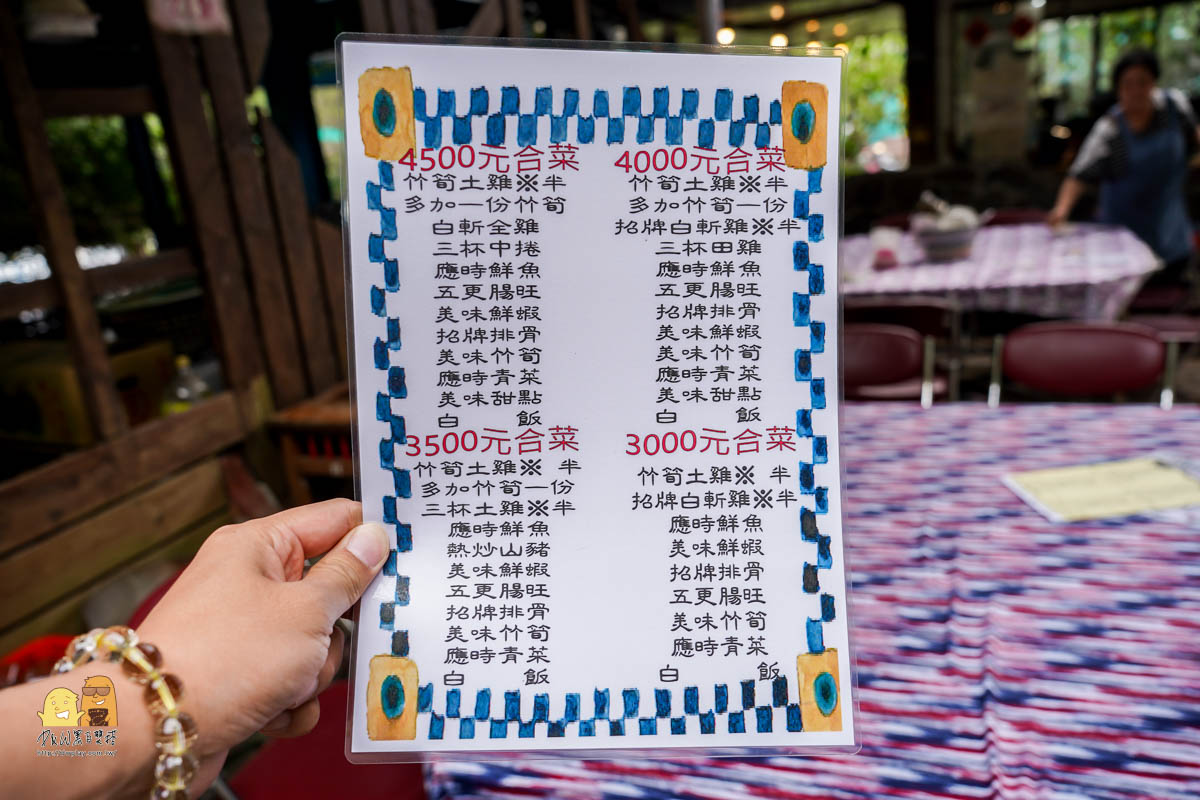 4500元合菜
竹筍土雞※半
多加一份竹筍
白斬全雞
三杯中捲
應時鮮魚
五更腸旺
美味鮮蝦
招牌排骨
美味竹筍
應時青菜
美味甜點
白 飯
4000元合菜
竹筍土雞※半
多加竹筍一份
招牌白斬雞※半
三杯田雞
應時鮮魚
五更腸旺
招牌排骨
美味鮮蝦
美味竹筍
應時青菜
美味甜點
白 飯
3500元合菜
竹筍土雞※ 半
多加竹筍一份
三杯土雞※半
應時鮮魚
熱炒山豬
美味鮮蝦
五更腸旺
招牌排骨
美味竹筍
應時青菜
白 飯
3000元合菜
竹筍土雞※ 半
招牌白斬雞※半
應時鮮魚
美味鮮蝦
招牌排骨
五更腸旺
美味竹筍
應時青菜
白 飯